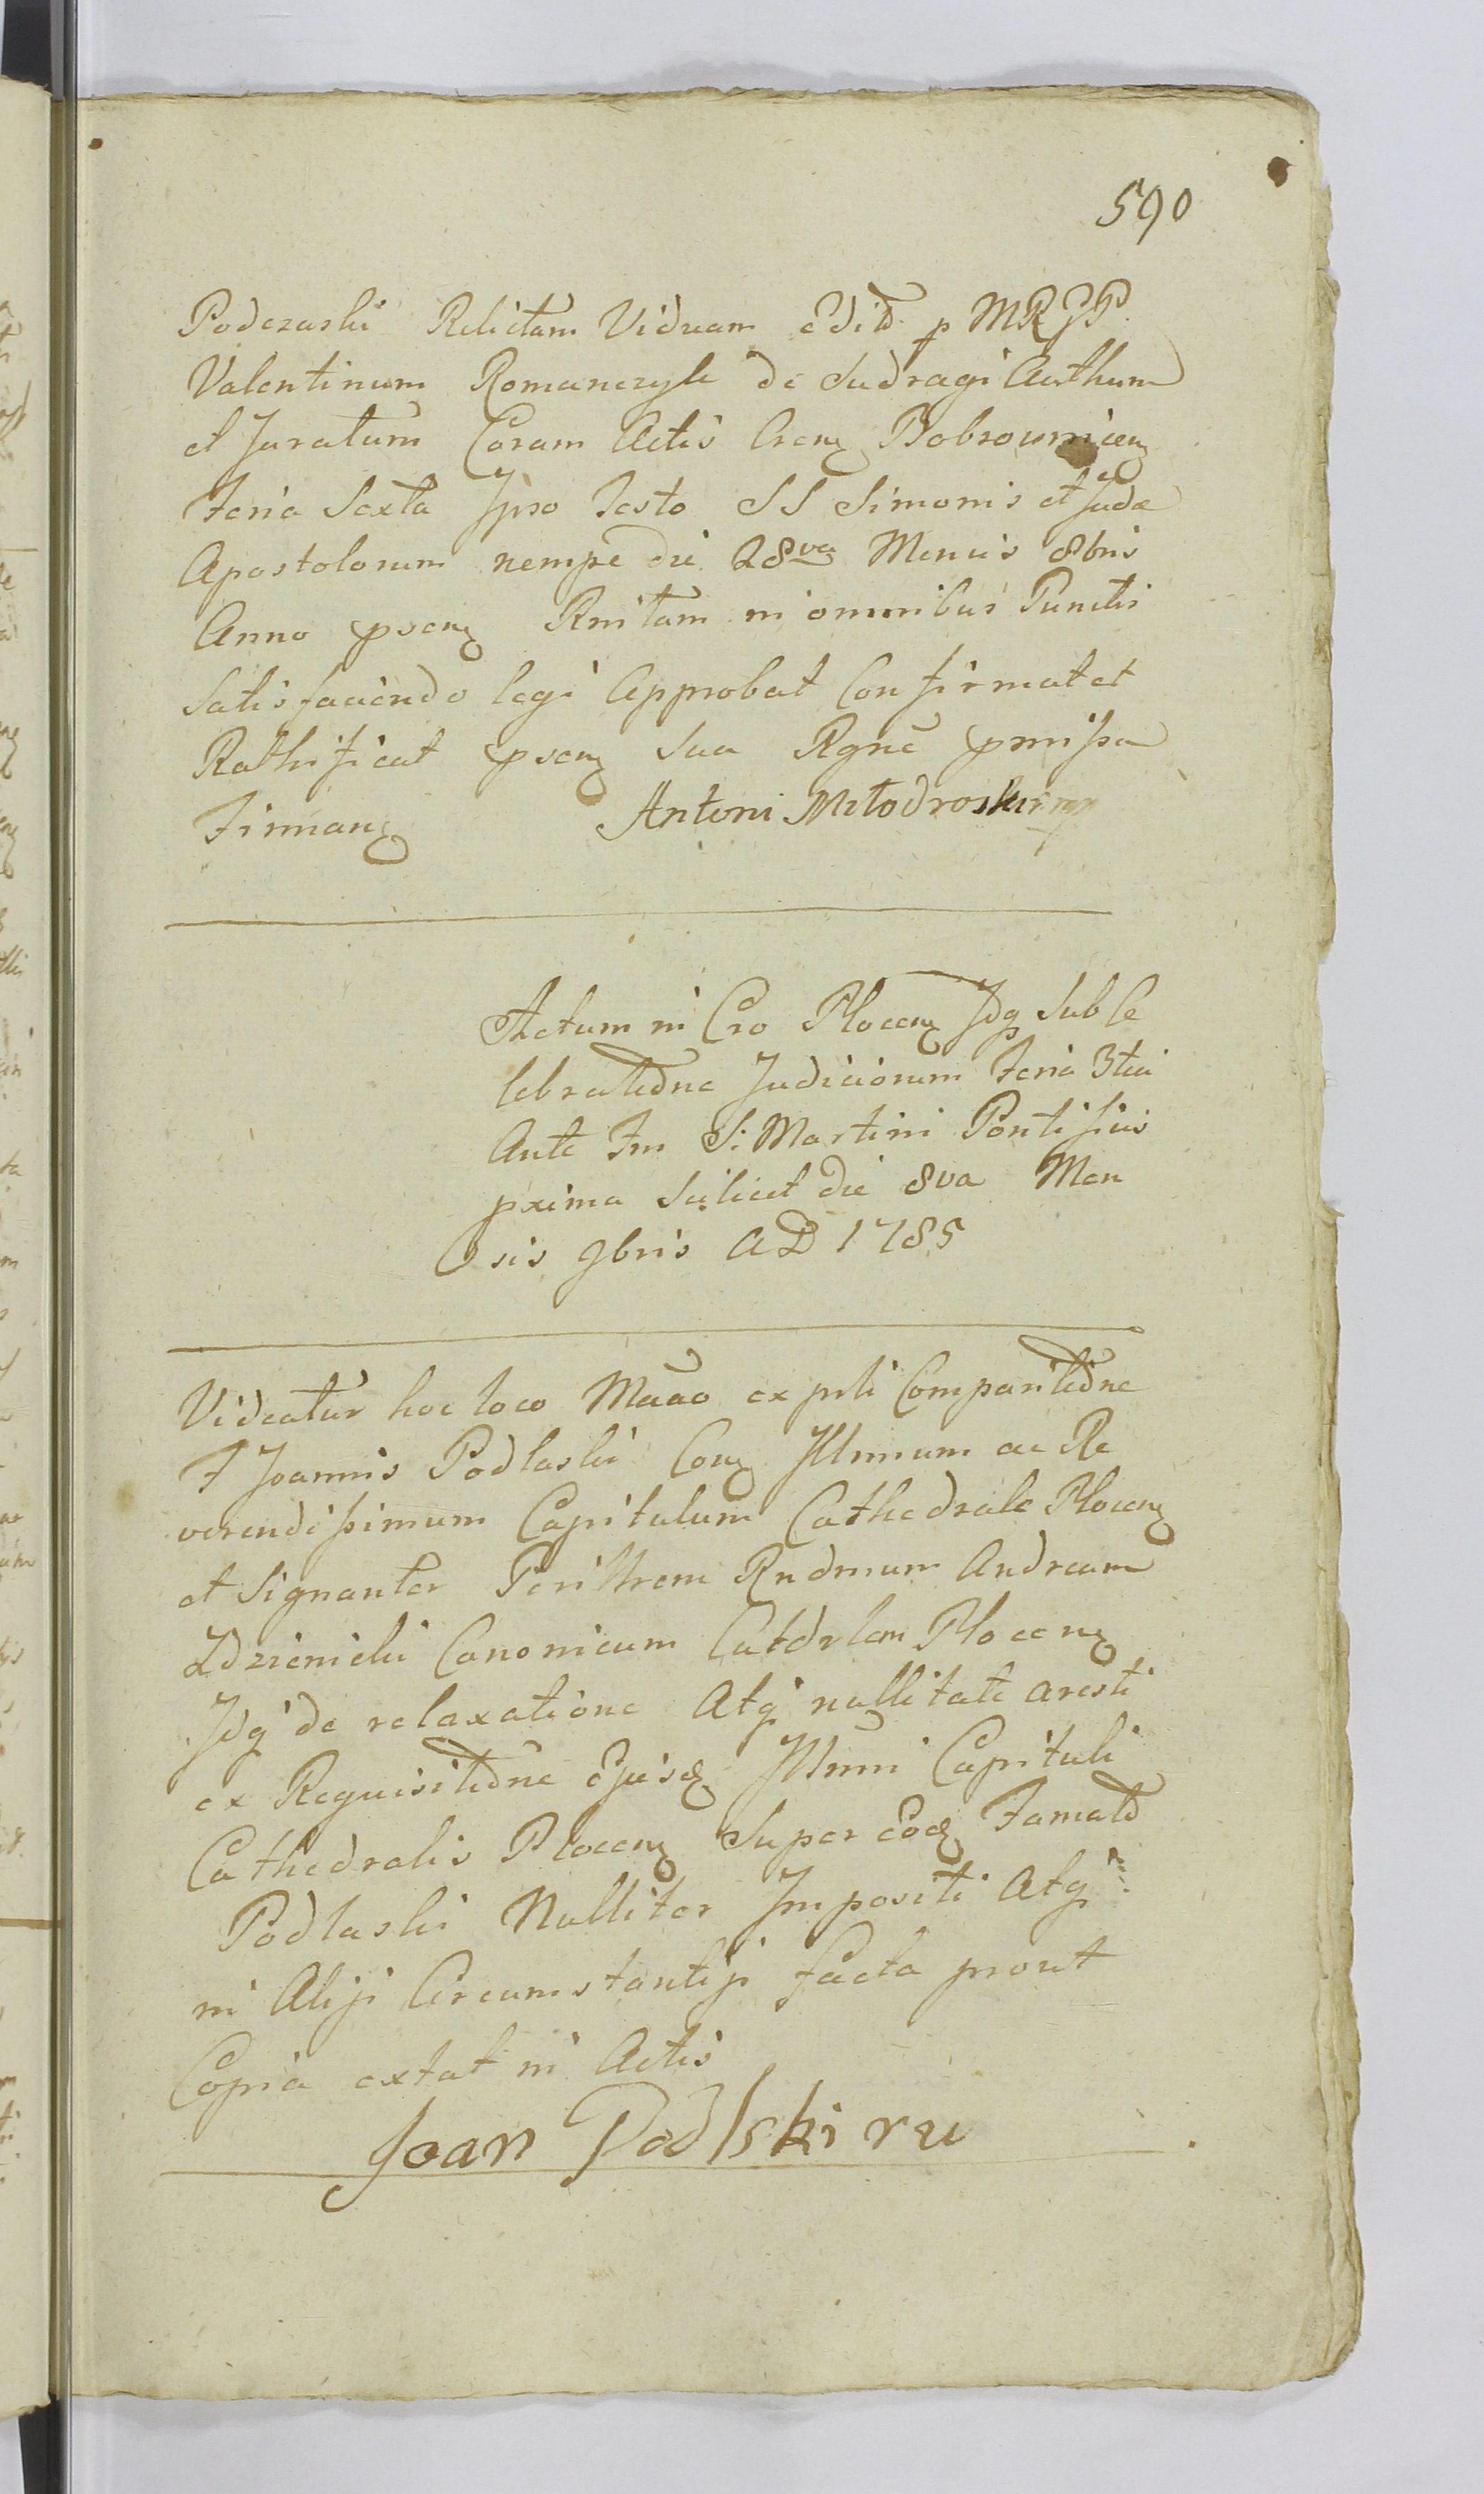 590
Podczaski Relictam Viduam edit p MRJP.
Valentinum Romanczyk de Sudragi Authum
et Juratum Coram Actis Cren Bobrownicen
Feria Sexta Ipso Festo SS Simonis et Judae
Apostolorum nempe die 28va Mensis 8bris
Anno psen Rnitam in omnibus Punctis
Satisfaciendo legi Approbat Confirmat et
Rathificat psen sua Rgne pmissa
Firman Antoni Młodroski mp
Actum in Cro Plocen Idq sub Ce
lebratidne Judiciorum Feria 3tia
Ante Fm S: Martini Pontificis
pxima Scilicet die 8va Men
sis 9bris AD 1785
Videatur hoc loco Maao ex prti Comparitidne
F Joannis Podlaski Con Illmum ac Re
verendissimum Capitulum Cathedrale Plocen
et Signanter Perillrem Rndmum Andream
Zdzienicki Canonicum Catdrlem Plocen
Idq de relaxatione Atq nullitate aresti
ex Requisitidne Ejusd Illmi Capituli
Cathedralis Plocen Super eod Famato
Podlaski Nulliter Impositi Atq
in Alijs Circumstantijs facta prout
Copia extat in Actis
Joan Podlski